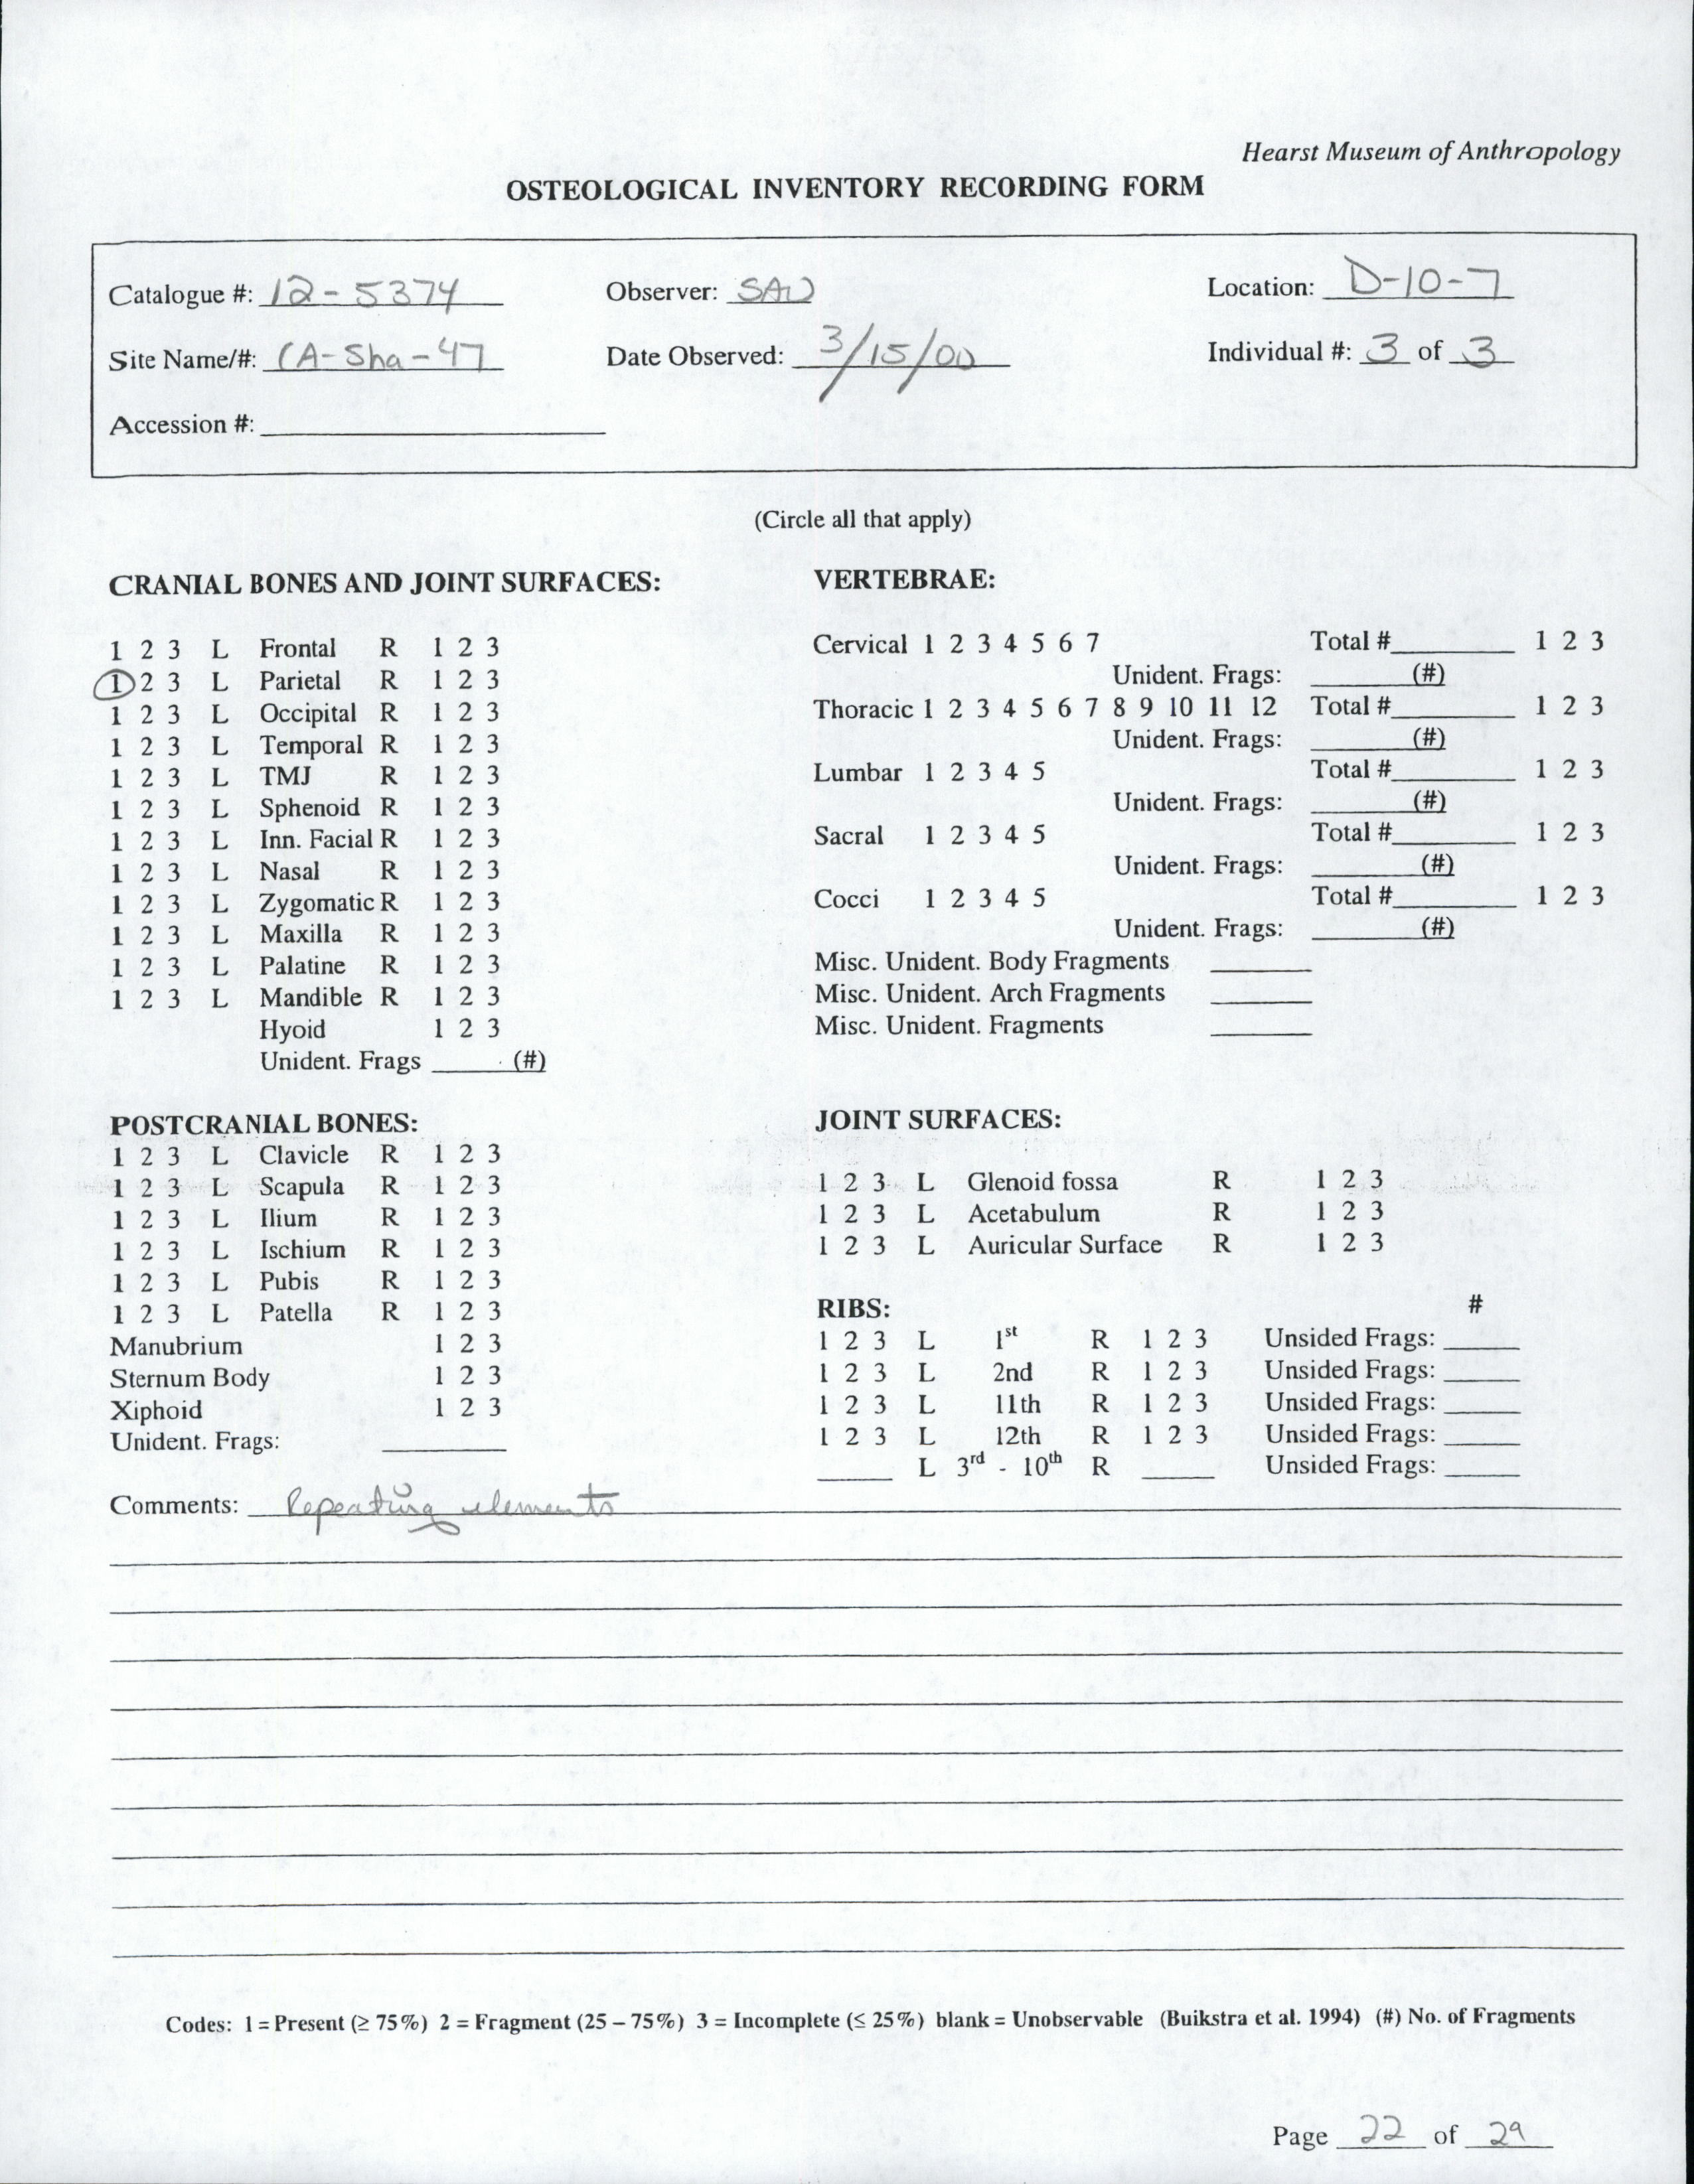 Hearst Museum of Anthropology
OSTEOLOGICAL INVENTORY RECORDING FORM
Catalogue #: 12-5374 Observer: SAW Location: D-10-7
Site Name/#: CA-Sha-47 Date Observed: 3/15/00 Individual #: 3 of 3
Accession #:
(Circle all that apply)
CRANIAL BONES AND JOINT SURFACES:
1 2 3 L Frontal R 1 2 3
1 2 3 L Parietal R 1 2 3
1 2 3 L Occipital R 1 2 3
1 2 3 L Temporal R 1 2 3
1 2 3 L TMJ R 1 2 3
1 2 3 L Sphenoid R 1 2 3
1 2 3 L Inn. Facial R 1 2 3
1 2 3 L Nasal R 1 2 3
1 2 3 L Zygomatic R 1 2 3
1 2 3 L Maxilla R 1 2 3
1 2 3 L Palatine R 1 2 3
1 2 3 L Mandible R 1 2 3
Hyoid 1 2 3
Unident. Frags (#)
VERTEBRAE:
Cervical 1 2 3 4 5 6 7 Total # 1 2 3
Unident. Frags: (#)
Thoracic 1 2 3 4 5 6 7 8 9 10 11 12 Total # 1 2 3
Unident. Frags: (#)
Lumbar 1 2 3 4 5 Total # 1 2 3
Unident. Frags: (#)
Sacral 1 2 3 4 5 Total # 1 2 3
Unident. Frags: (#)
Cocci 1 2 3 4 5 Total # 1 2 3
Unident. Frags: (#)
Misc. Unident. Body Fragments
Misc. Unident. Arch Fragments
Misc. Unident. Fragments
POSTCRANIAL BONES:
1 2 3 L Clavicle R 1 2 3
1 2 3 L Scapula R 1 2 3
1 2 3 L Ilium R 1 2 3
1 2 3 L Ischium R 1 2 3
1 2 3 L Pubis R 1 2 3
1 2 3 L Patella R 1 2 3
Manubrium 1 2 3
Sternum Body 1 2 3
Xiphoid 1 2 3
Unident. Frags:
JOINT SURFACES:
1 2 3 L Glenoid fossa R 1 2 3
1 2 3 L Acetabulum R 1 2 3
1 2 3 L Auricular Surface R 1 2 3
RIBS: #
1 2 3 L 1st R 1 2 3 Unsided Frags:
1 2 3 L 2nd R 1 2 3 Unsided Frags:
1 2 3 L 11th R 1 2 3 Unsided Frags:
1 2 3 L 12th R 1 2 3 Unsided Frags:
L 3rd - 10th R Unsided Frags:
Comments: Repeating elements
Codes: 1 = Present (≥ 75%) 2 = Fragment (25 – 75%) 3 = Incomplete (≤ 25%) blank = Unobservable (Buikstra et al. 1994) (#) No. of Fragments
Page 22 of 29